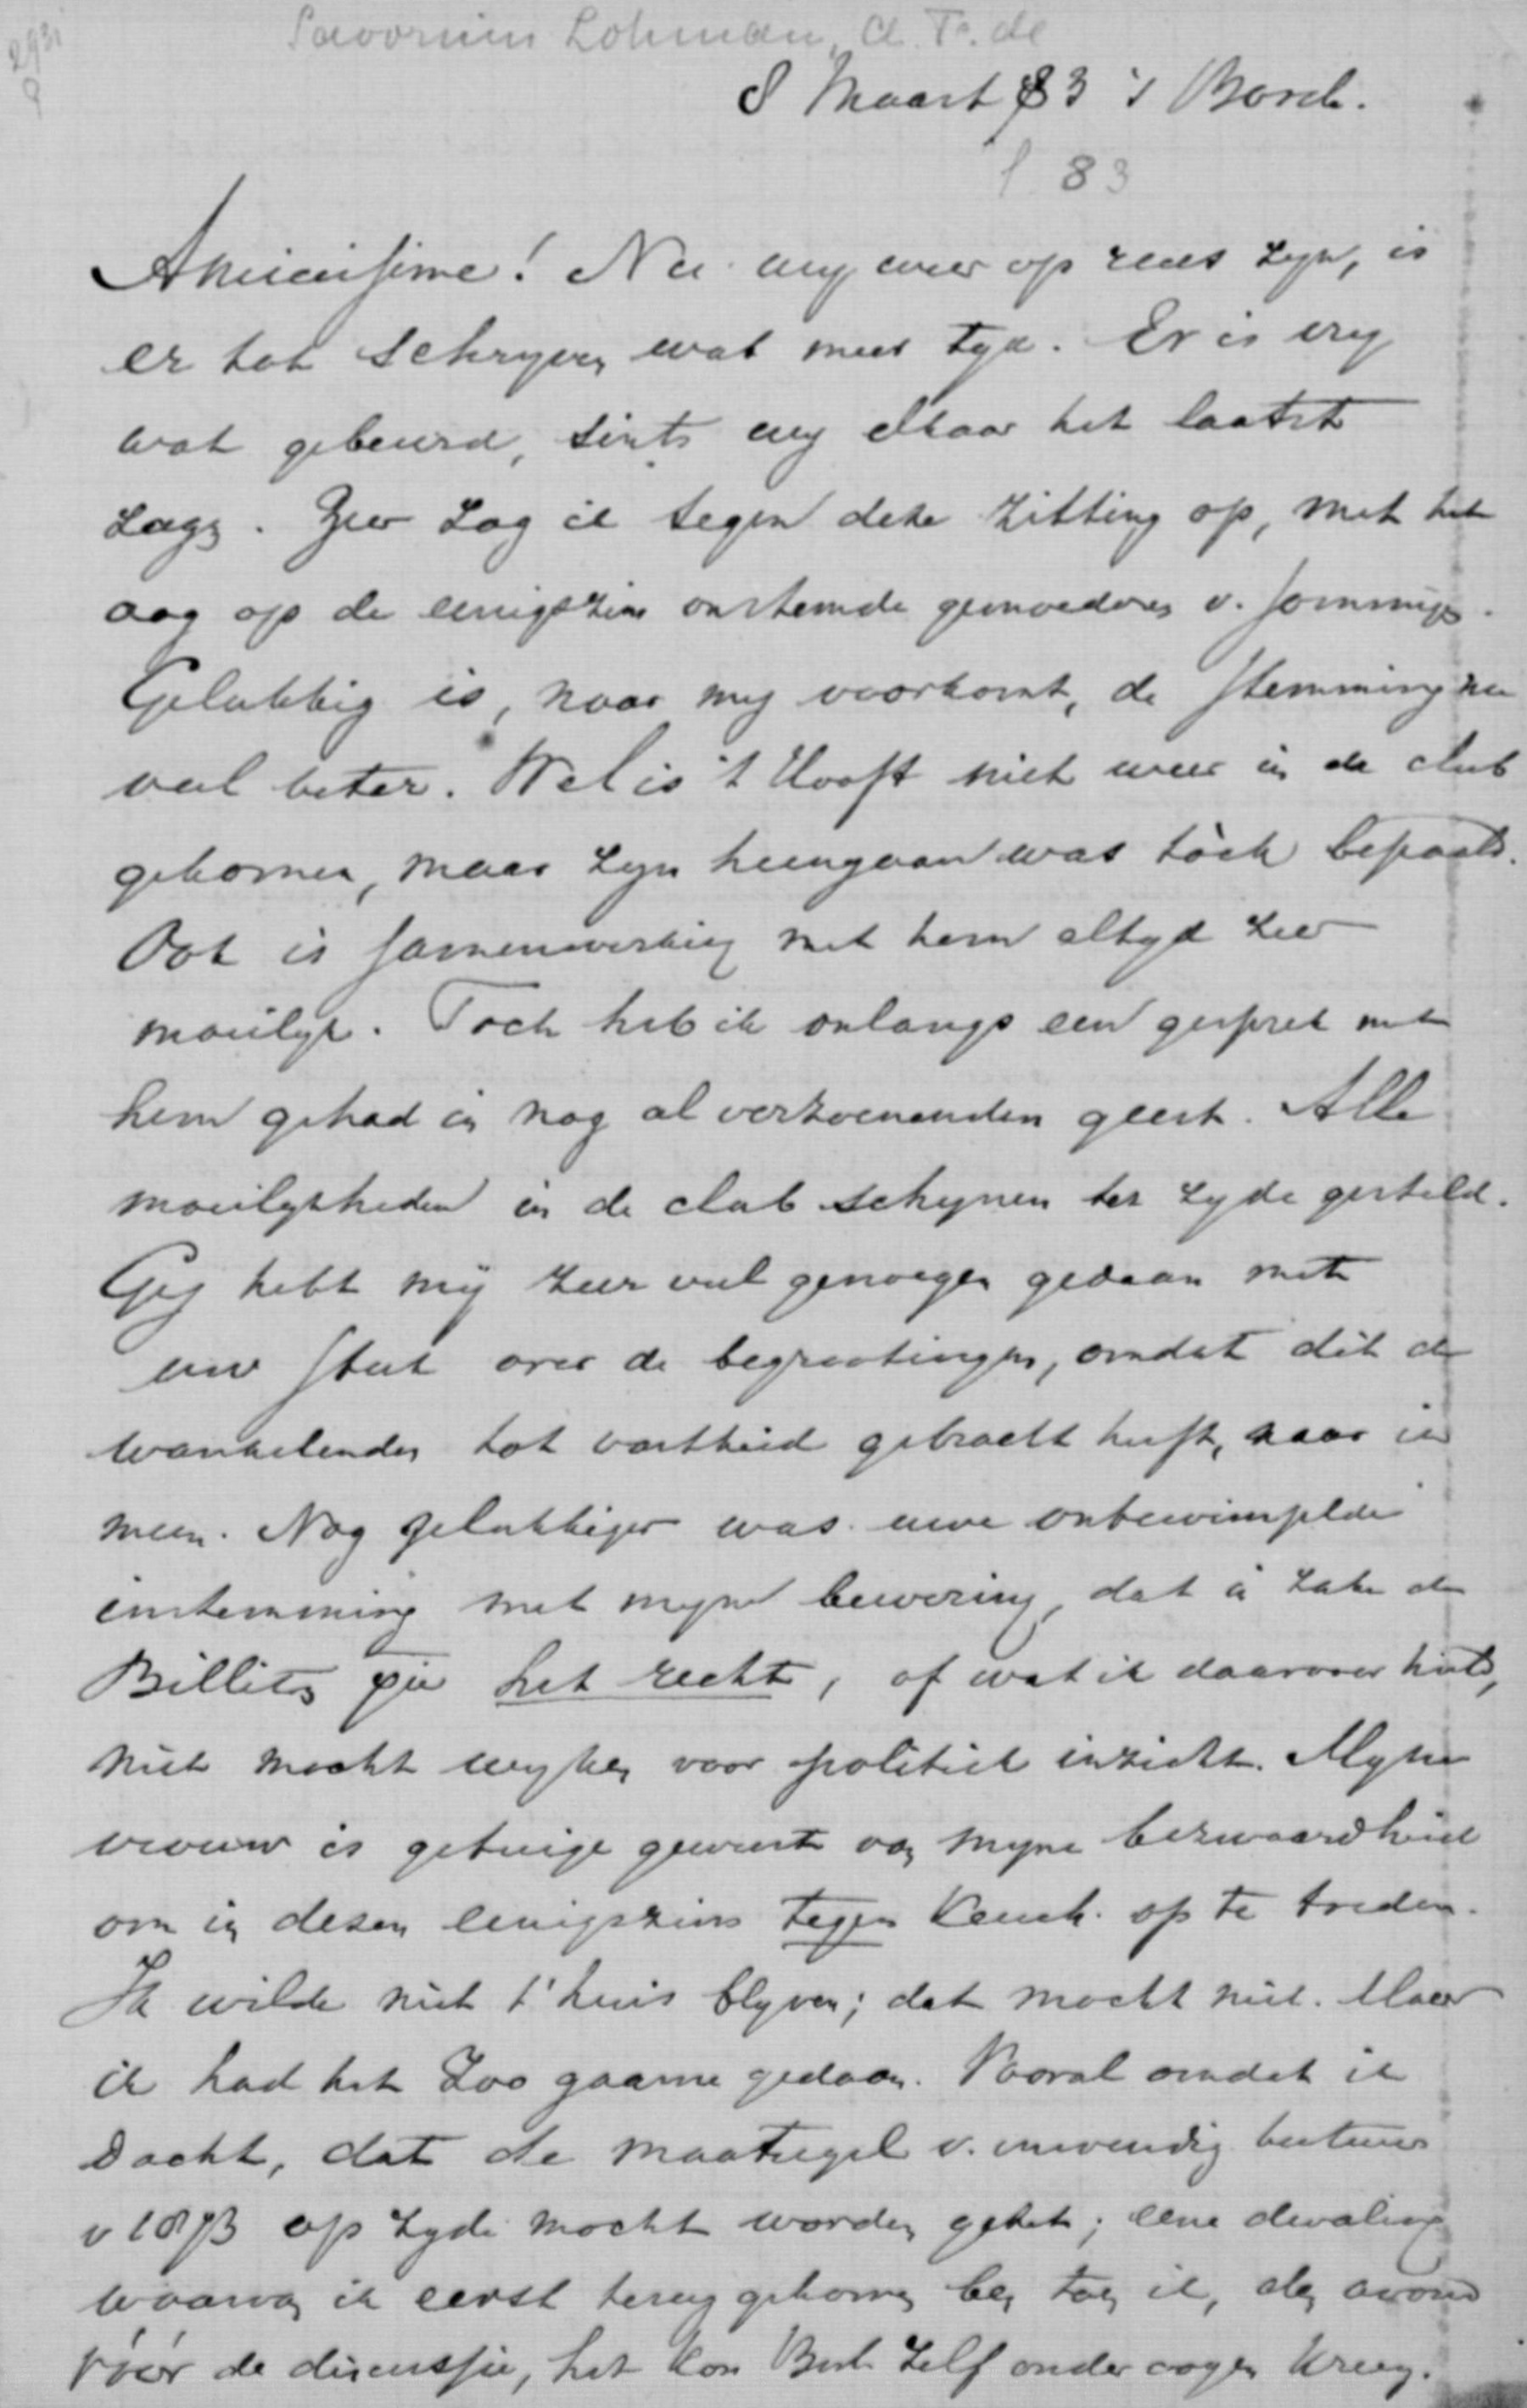 Savornin Lohman, A. F. de
8 Maart 83 's Bosch.
83
Amicissime! Nu wy weer op reces zyn, is
er tot schryven wat meer tyd. Er is vry
wat gebeurd, sints wy elkaar het laatst
zagen. Zeer zag ik tegen deze zitting op, met het
oog op de eenigszins ontstemde gemoederen v. sommigen.
Gelukkig is, naar my voorkomt, de stemming nu
veel beter. Wel is 't Hooft niet weer in de club
gekomen, maar zyn heengaan was tòch bepaald.
Ook is samenwerking met hem altyd zeer
moeilyk. Toch heb ik onlangs een gesprek met
hem gehad in nog al verzoenenden geest. Alle
moeilykheden in de club schynen ter zyde gesteld.
Gy hebt my zeer veel genoegen gedaan met
uw stuk over de begrootingen, omdat dit de
wankelenden tot vastheid gebracht heeft, naar ik
meen. Nog gelukkiger was uwe onbewimpelde
instemming met myne bewering, dat in zake de
Billiton het recht, of wat ik daarvoor hield,
niet mocht wyken voor politiek inzicht. Myne
vrouw is getuige geweest van myne bezwaardheid
om in dezen eenigszins tegen Keuch. op te treden.
Ik wilde niet t'huis blyven; dat mocht niet. Maar
ik had het zoo gaarne gedaan. Vooral omdat ik
dacht, dat de maatregel v. inwendig bestuur
v 1873 op zyde mocht worden gezet; eene dwaling
waarvan ik eerst teruggekomen ben toen ik, den avond
vóór de discussie, het Kon Besl. zelf onder oogen kreeg.